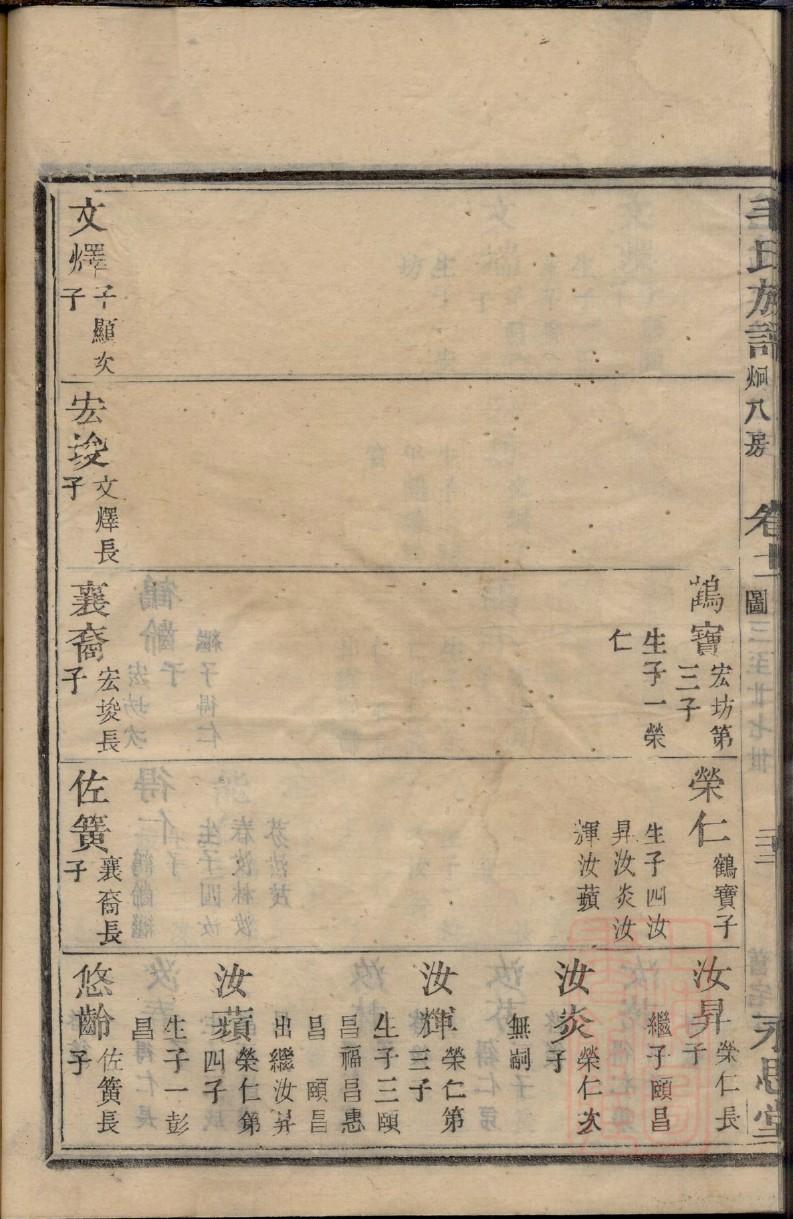 毛氏族譜 烱八房 卷十一 圖 三至廿七世 永思堂
鶴寶 宏坊第
三子
生子一榮
仁
榮仁 鶴寶子
生子四汝
昇汝炎汝
輝汝蘋
汝昇 榮仁長
子
繼子頤昌
汝炎 榮仁次
子
無嗣
汝輝 榮仁第
三子
生子三頤
昌福昌惠
昌 頤昌
出繼汝昇
汝蘋 榮仁第
四子
生子一彭
昌
文燡 子顯次
子
宏埈 文燡長
子
襄裔 宏埈長
子
佐簧 襄裔長
子
悠齡 佐簧長
子